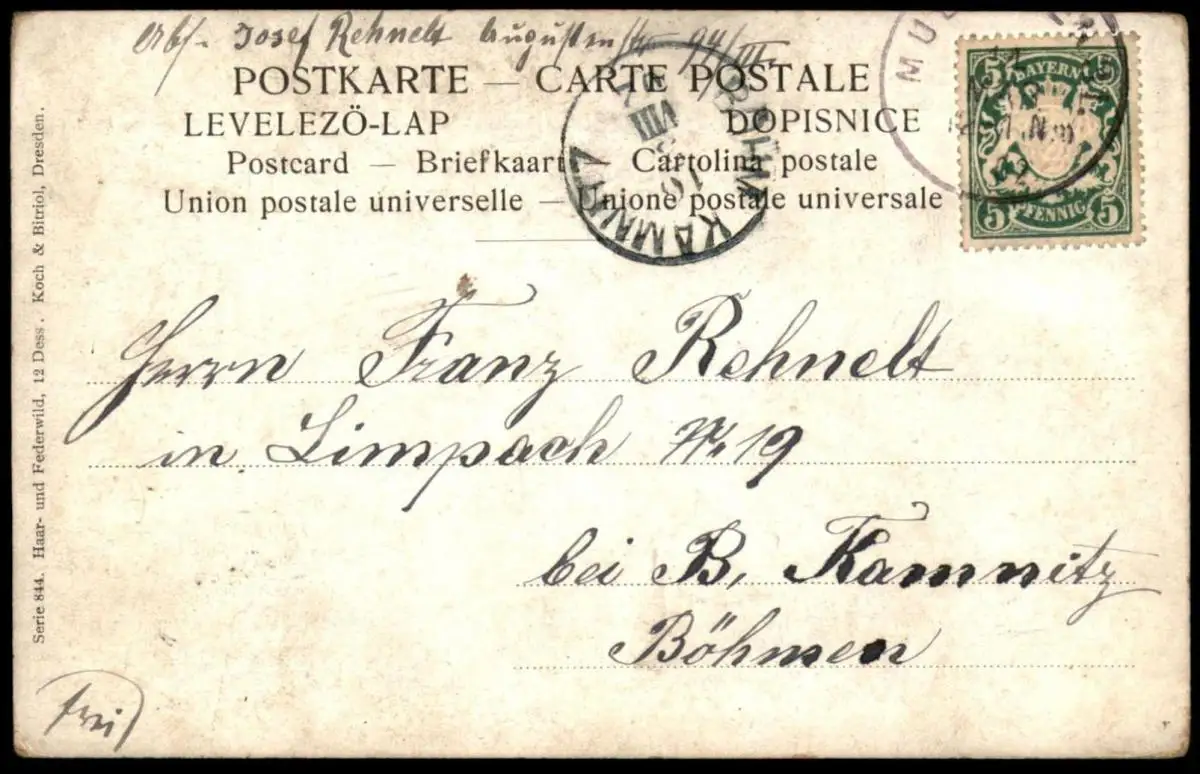 Abs. Josef Rehnelt Augustenstr. 94/III.
POSTKARTE — CARTE POSTALE
LEVELEZŐ-LAP DOPISNICE
Postcard — Briefkaart — Cartolina postale
Union postale universelle — Unione postale universale
BAYERN
5 5
5 PFENNIG 5
Herrn Franz Rehnelt
in Limpach № 19
bei B. Kamnitz
Böhmen
frei
Serie 844. Haar- und Federwild, 12 Dess. Koch & Bitriol, Dresden.